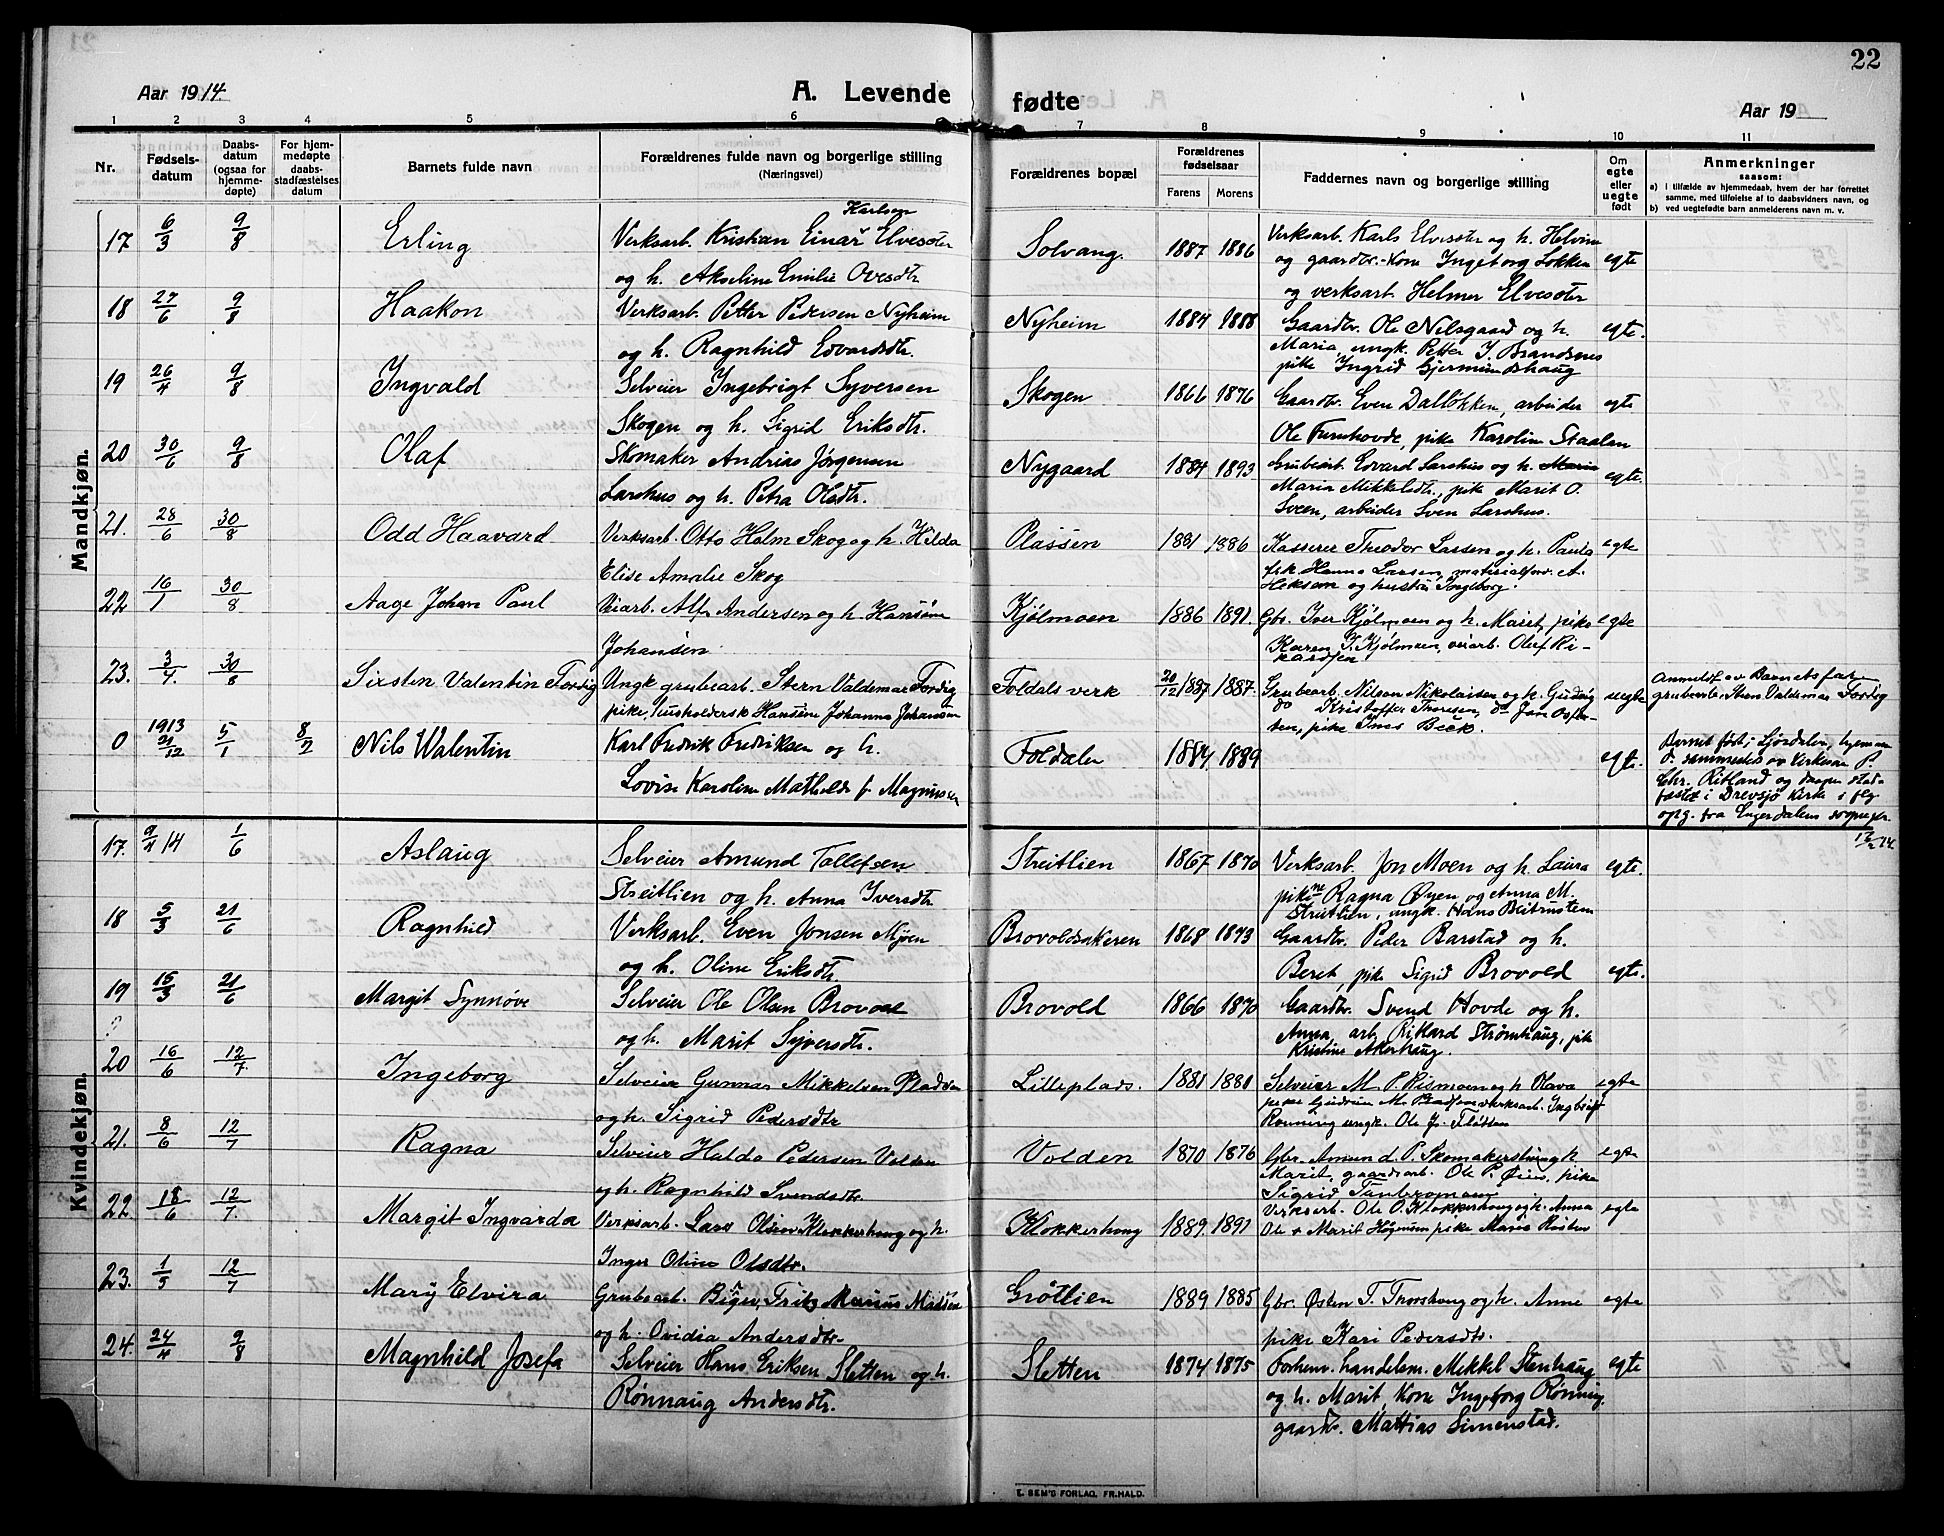 22
Aar 1914.
A. Levende fødte
Aar 19
1 2 3 4 5 6 7 8 9 10 11
Nr.
Fødselsdatum
Daabsdatum (ogsaa for hjemmedøpte)
For hjemmedøpte daabsstadfæstelses datum
Barnets fulde navn
Forældrenes fulde navn og borgerlige stilling
(Næringsvei)
Forældrenes bopæl
Forældrenes fødselsaar
Farens Morens
Faddernes navn og borgerlige stilling
Om egte eller uegte født
Anmerkninger
saasom:
a) i tilfælde av hjemmedaab, hvem der har forrettet samme, med tilføielse af to daabsvidners navn, og
b) ved uegtefødte barn anmelderens navn m. v.
Mandkjøn.
17 6/3 9/8 Erling
Verksarb. Kristian Einar Karlsen Elvesæter
og h. Akseline Emilie Ovesdtr
Solvang. 1887 1886
Verksarb. Karls Elvesæter og h. Helvine
og gaardbr.-Kone Ingeborg Løkken
og verksarb Helmer Elvesæter
egte
18 27/6 9/8 Haakon
Verksarb. Petter Pedersen Nyheim
og h. Ragnhild Edvardsdtr.
Nyheim 1884 1888
Gaardbr. Ole Nilsgaard og h.
Maria, ungk. Petter J. Brandsnes
pike Ingrid Gjermundshaug
egte.
19 26/4 9/8 Ingvald
Selveier Ingebrigt Syversen
Skogen og h. Sigrid Eriksdtr.
Skogen 1866 1876
Gaardbr. Even Dalløkken, arbeider
Ole Furuhovde, pike Karoline Staalen
egte
20 30/6 9/8 Olaf
Skomaker Andrias Jørgensen
Larshus og h. Petra Olsdtr.
Nygaard 1884 1893
Grubearb. Edvard Larshus og h. Maria
Maria Mikkelsdtr., pike Marit O.
Sveen, arbeider Sven Larshus.
egte.
21. 28/6 30/8 Odd Haavard
Verksarb. Otto Holm Skog og h. Hilda
Elise Amalie Skog
Plassen 1881 1886
Kasserer Theodor Lassen og h. Paula
frk. Hanna Larsen, materialforv. A.
og hustru Ingeborg.
egte
22 16/1 30/8 Aage Johan Paul
Veiarb. Alf Andersen og h. Hansine
Johansen
Kjølmoen 1886 1891.
Gbr. Iver Kjølmoen og h. Marit, pike
Karen I. Kjølmoen, veiarb. Oluf Ri-
kardsen
egte
23. 3/4. 30/8 Sixsten Valentin Fordig
Ungk. grubearb. Stern Valdemar Fordig
pike, husholderske Hansine Johanna Johansen
Foldals verk 20/12 1887 1887.
Grubearb. Nilson Nikolaisen og h. Gudveig
do Kristoffer Thoresen, do Jon
pike Inus Beck.
uegte
Anmeldt av Barnets far
grubearb. Sten Valdemar Fordig
0 1913 21/12 5/1 8/2 Nils Walentin
Karl Fredrik Fredriksen og h.
Lovise Karoline Mathilde f. Magnussen
Foldalen 1884. 1889
egte.
Barnet født i Sjørdalen, hjemme
d. sammesteds av Kirkesan. P.
Chr. Ritland og daapen stad-
fæstet i Drevsjø Kirke i flg
opg. fra Engerdalens sogneprest
17/2 14.
Kvindekjøn.
17. 9/4 14 1/6 Aslaug
Selveier Amund Tollefsen
Streitlien og h. Anna Iversdtr
Streitlien 1867 1870
Verksarb. Jon Moen og h. Laura
pikene Ragna Øyen og Anna M.
Streitlien, ungk. Hans Blitrusten
egte.
18 5/3 21/6 Ragnhild
Verksarb. Even Jonsen Mjøen
og h. Oline Eriksdtr
Brovoldsakeren 1868 1873
Gaardbr. Peder Barstad og h.
Beret, pike Sigrid Brovold
egte.
19 15/3 21/6 Margit Synnøve
Selveier Ole Olsen Brovold
og h. Marit Syversdtr.
Brovold 1866 1870
Gaardbr. Svend Hovde og h.
Anna, arb. Rikard Strømhaug, pik
Kristine Akerhaug.
20 16/6 12/7. Ingeborg
Selveier Gunnar Mikkelsen Pladsen
og h. Sigrid Pedersdtr
Lilleplads. 1881 1881
Selveier M. P. Rismoen og h. Olava
pike Gudrun M. Pladsen verksarb. Ingbrigt
Rønning ungk. Ole J. Fløtten
egte
21. 8/6 12/7 Ragna
Selveier Haldo Pedersen Volden
og h. Ragnhild Svendsdtr.
Volden 1870 1876
Gbr. Amund P. Skomakerstuen og h.
Marit, gaardsarb. Ole P. Øien, pike
Sigrid
egte
22. 18/6 12/7. Margit Ingvarda
Verksarb. Lars Olsen Klokkerhaug og h.
Inger Oline Olsdtr.
Klokkerhaug 1889. 1891
Verksarb. Ole O. Klokkerhaug og h. Anna
Ole + Marit Høgmoen pike Marie Røsten
egte
23. 1/5 12/7 Mary Elvira
Grubearb. Birger, Fritz Marius Madsen
og h. Ovidia Andersdtr.
Grøtlien 1889 1885
Gbr. Østen T. Thorshaug og h. Anne
pike Kari Pedersdtr.
egte
24. 24/4 9/8 Magnhild Josefa
Selveier Hans Eriksen Sletten og h.
Rønnaug Andersdtr.
Sletten 1874 1875
Forhenv. handelsm. Mikkel Stenhaug
og h. Marit, Kone Ingeborg Rønning,
gaardbr. Mattias Simenstad.
egte
E. SEM'S FORLAG, FR.HALD.